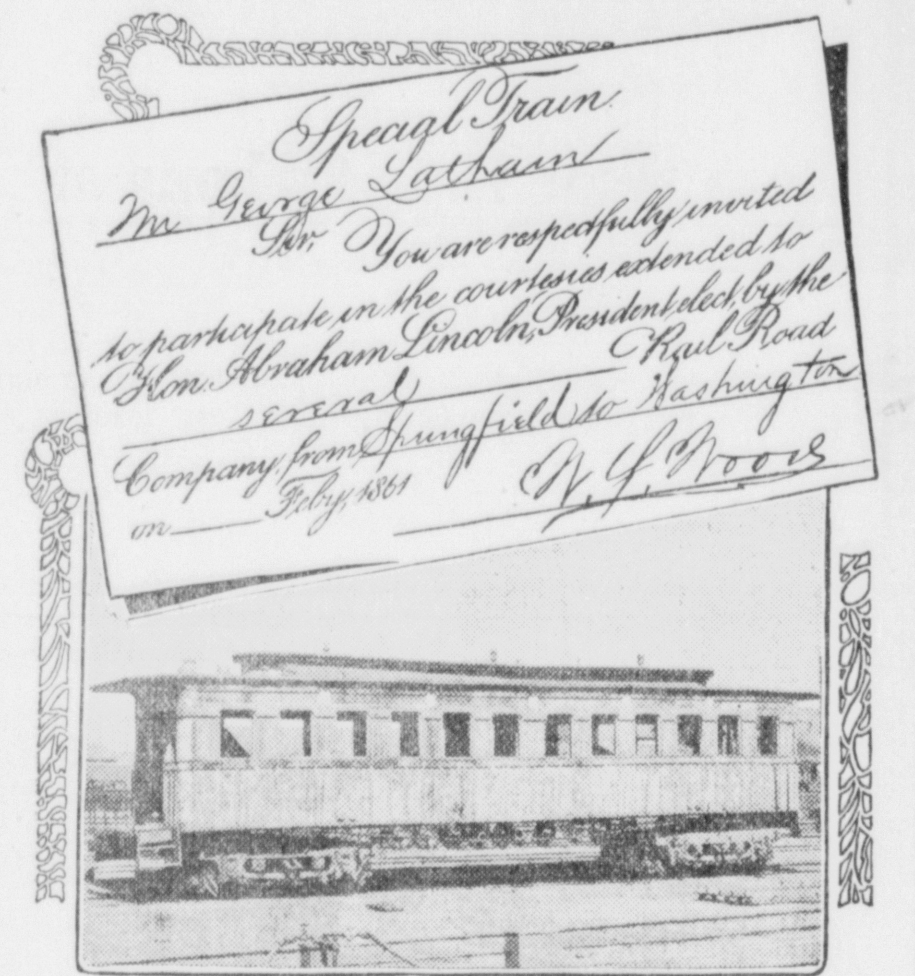 Special Train.
Mr George Latham
Sir, You are respectfully invited
to participate in the courtesies extended to
Hon. Abraham Lincoln, President elect, by the
several Rail Road
Company, from Springfield to Washington
on Feby, 1861 W. S. Wood